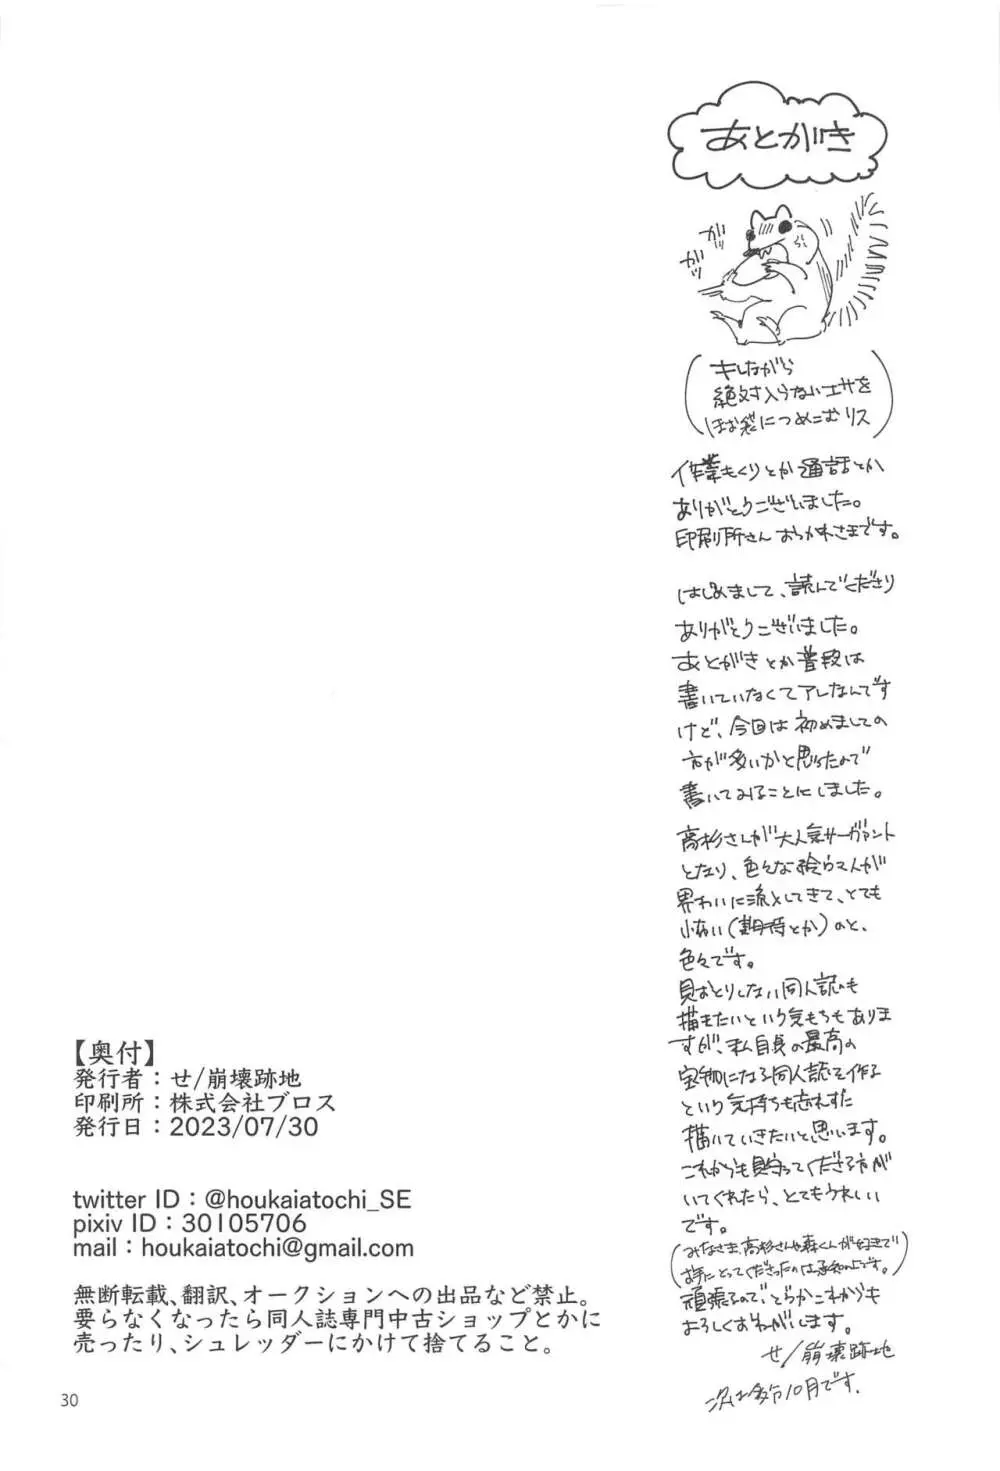 あとがき
ガッ
ガッ
(キレながら
絶対入らないエサを
ほお袋につめこむリス)
作業もくりとか通話とか
ありがとうございました。
印刷所さんおつかれさまです。
はじめまして、読んでくださり
ありがとうございました。
あとがきとか普段は
書いていなくてアレなんです
けど、今回は初めましての
方が多いかと思ったので
書いてみることにしました。
高杉さんが大人気サーヴァント
となり、色々な絵うまい人が
界わいに流入してきて、とても
小布い(期待とか)のと、
色々です。
見おとりしない同人誌も
描きたいという気もちもありま
すが、私自身の最高の
宝物になる同人誌を作る
という気持ちも忘れずに
描いていきたいと思います。
これからも見守ってくださる方が
いてくれたら、とてもうれしい
です。
(みなさま、高杉さんや森くんが好きで
お手にとってくださったのは承知の上です。)
頑張るので、どうかこれからも
よろしくおねがいします。
せ/崩壊跡地
次は多分10月です.
【奥付】
発行者：せ/崩壊跡地
印刷所：株式会社ブロス
発行日：2023/07/30
twitter ID：@houkaiatochi_SE
pixiv ID：30105706
mail：houkaiatochi@gmail.com
無断転載、翻訳、オークションへの出品など禁止。
要らなくなったら同人誌専門中古ショップとかに
売ったり、シュレッダーにかけて捨てること。
30